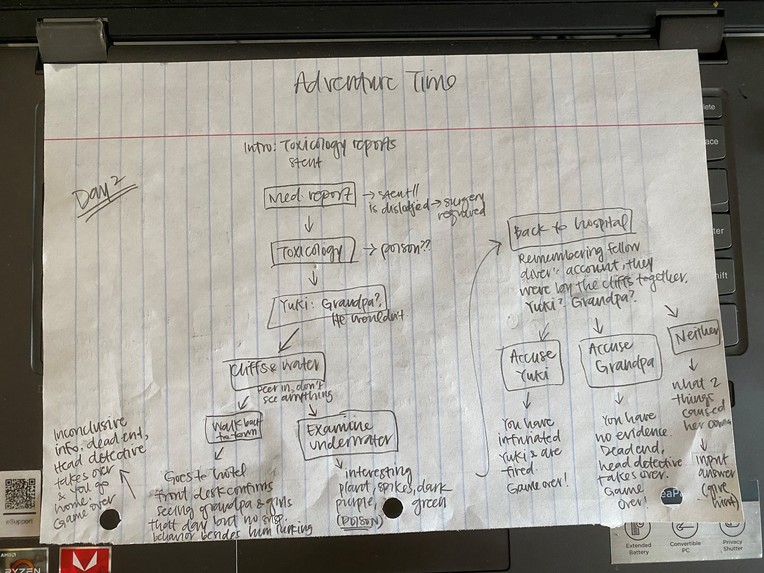 Adventure Time
Intro: Toxicology reports
stent
Day 2
Med. report → stent!!
is dislodged → surgery
required
Toxicology → poison??
Yuki: Grandpa?
He wouldn't
Cliffs & water
peer in, don't
see anything
Walk back
to town
Examine
underwater
Inconclusive
info. dead end,
Head detective
takes over
& you go
home.
Game over
Goes to hotel
front desk confirms
seeing grandpa & girls
that day but no
behavior besides him lurking
interesting
plant, spikes, dark
purple, green
(POISON)
Back to hospital
Remembering fellow
diver's account, they
were by the cliffs together.
Yuki? Grandpa?
Accuse
Yuki
Accuse
Grandpa
Neither
You have
infuriated
Yuki & are
fired.
Game over!
You have
no evidence.
Dead end,
head detective
takes over.
Game
Over!
What 2
things
caused
her
input
answer
(give
hint)
eSupport
AMD
RYZEN
Extended
Battery
Convertible
PC
Privacy
Shutter